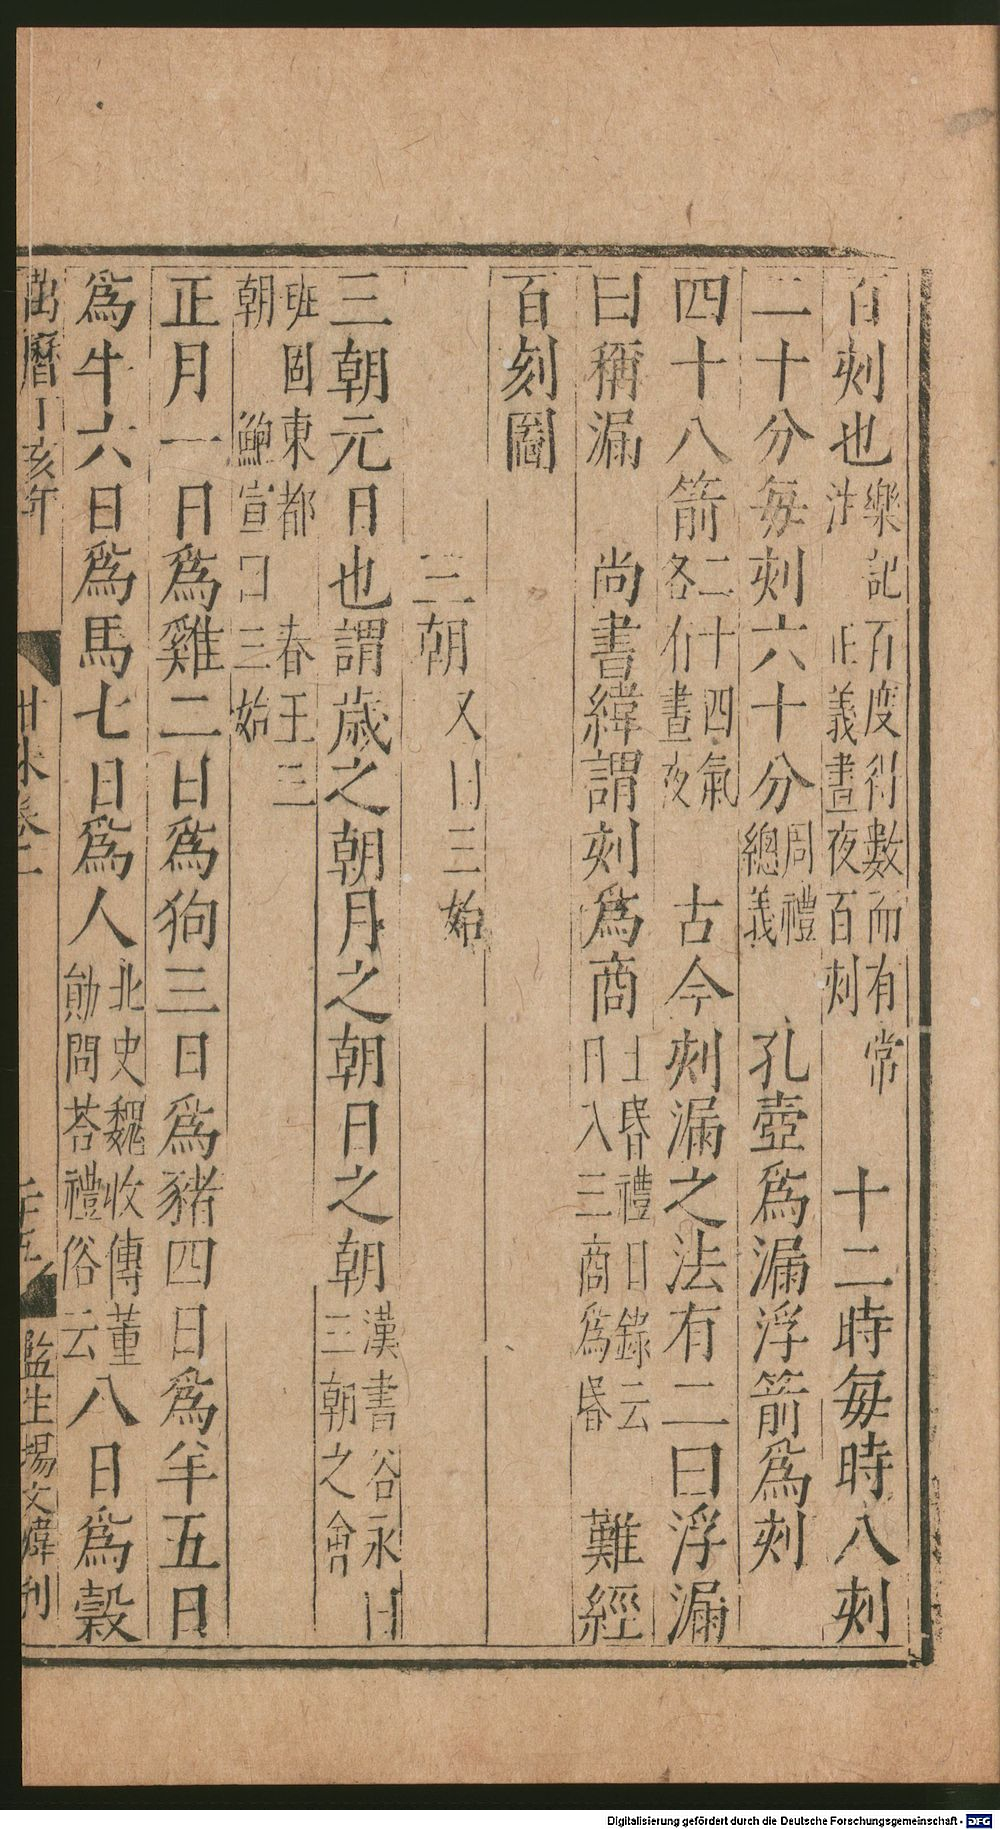 百刻也樂記百度得數而有常注正義晝夜百刻　十二時每時八刻
二十分每刻六十分周禮總義　孔壺爲漏浮箭爲刻
四十八箭二十四氣各有晝夜　古今刻漏之法有二曰浮漏
曰稱漏　尚書緯謂刻爲商士昏禮目錄云日入三商爲昬　難經
百刻圖
三朝又曰三始
三朝元日也謂歲之朝月之朝日之朝漢書谷永曰三朝之會
班固東都　春王三朝　鮑宣曰三始
正月一日爲雞二日爲狗三日爲豬四日爲羊五日
爲牛六日爲馬七日爲人北史魏收傳董勛問荅禮俗云八日爲糓
萬曆丁亥年　卷二　監生楊文偉刊
Digitalisierung gefördert durch die Deutsche Forschungsgemeinschaft - DFG